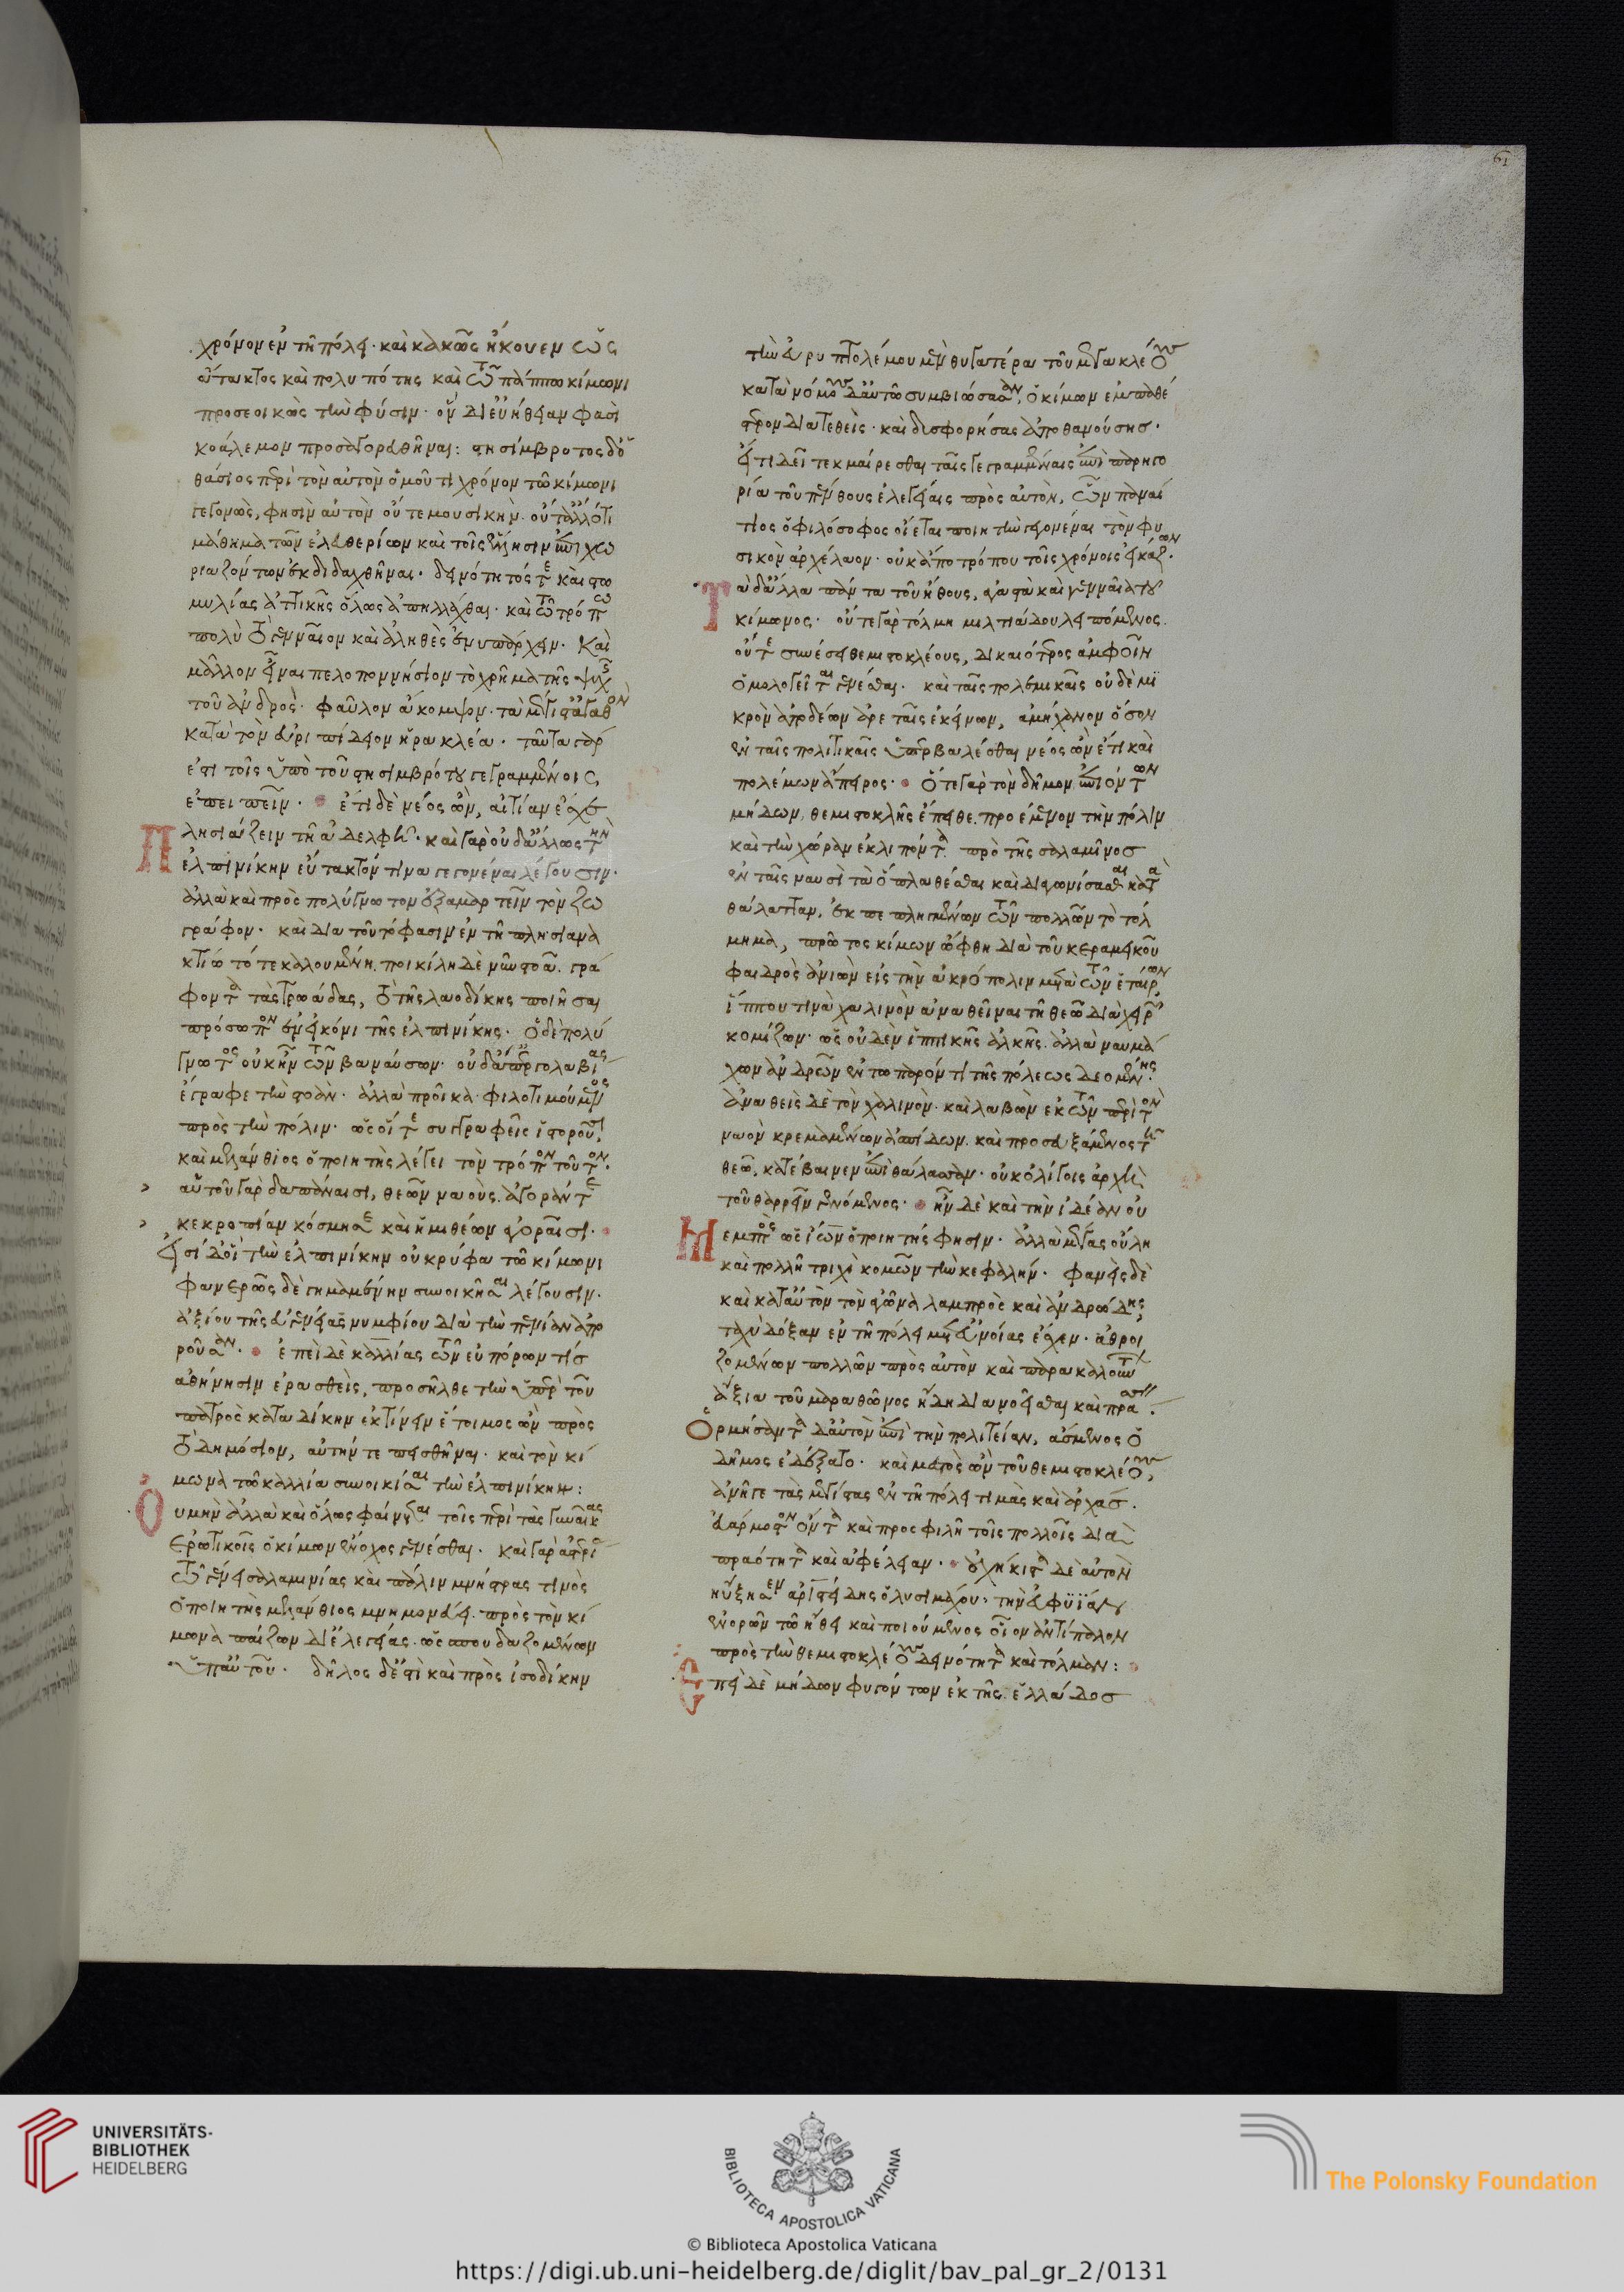 61
χρόνον ἐν τῆ πόλει· καὶ κακῶς ἤκουεν ὡς
ἄτακτος καὶ πολυπότης καὶ τῶ πάππω κίμωνι
προσεοικὼς τὴν φύσιν· ὃν δι εὐήθειαν φασὶ
κοάλεμον προσαγορευθῆναι: στησίμβροτος δ ὁ
θάσιος περὶ τὸν αὐτὸν ὁμοῦ τι χρόνον τῶ κίμωνι
γεγονὼς, φησὶν αὐτὸν οὔτε μουσικὴν· οὔτ ἄλλό τι
μάθημα τῶν ἐλευθερίων καὶ τοῖς ἕλλησιν ἐπιχω
ριαζόντων ἐκδιδαχθῆναι· δεινότητός τε καὶ στω
μυλίας ἀττικῆς ὅλως ἀπηλλάχθαι· καὶ τῶ τρόπω
πολὺ τὸ γενναῖον καὶ ἀληθὲς ἐνυπάρχειν· Καὶ
μᾶλλον εἶναι πελοποννήσιον τὸ χρῆμα τῆς ψυχῆς
τοῦ ἀνδρός· φαῦλον ἄκομψον· τὰ μέγιστ ἀγαθὸν
κατὰ τὸν εὐριπίδειον ἡρακλέα· ταῦτα γὰρ
ἔστι τοῖς ὑπὸ τοῦ στησιμβρότου γεγραμμένοις
ἐπειπεῖν· ἔτι δὲ νέος ὢν, αἰτίαν ἔσχε
Πλησιάζειν τῆ ἀδελφῆ· καὶ γὰρ οὐδ ἄλλως τὴν
ἐλπινίκην εὔτακτόν τινα γεγονέναι λέγουσιν·
ἀλλὰ καὶ πρὸς πολύγνωτον ἐξαμαρτεῖν τὸν ζω
γράφον· καὶ διὰ τοῦτό φασιν ἐν τῆ πλησιανα
κτίω τότε καλουμένη· ποικίλη δὲ νῦν στοᾶ· γρά
φοντα τὰς τρωάδας, τὸ τῆς λαοδίκης ποιῆσαι
πρόσωπον ἐν εἰκόνι τῆς ἐλπινίκης· ὁ δὲ πολύ
γνωτος οὐκ ἦν τῶν βαναύσων· οὐδ ἀπ ἐργολαβίας
ἔγραφε τὴν στοὰν· ἀλλὰ προῖκα· φιλοτιμούμενος
πρὸς τὴν πόλιν· ὡς οἵ τε συγγραφεῖς ἱστοροῦσι,
καὶ μελάνθιος ὁ ποιητὴς λέγει τὸν τρόπον τοῦτον·
αὑτοῦ γὰρ δαπάναισι, θεῶν ναοὺς, ἀγοράν τε
κεκροπίαν κόσμησε καὶ ἡμιθέων ἀρεταῖσι·
Εἰσὶ δ οἳ τὴν ἐλπινίκην οὐ κρύφα τῶ κίμωνι
φανερῶς δὲ γημαμένην συνοικῆσαι λέγουσιν·
ἀξίου τῆς εὐγενείας νυμφίου διὰ τὴν πενίαν ἀπο
ροῦσαν· ἐπεὶ δὲ καλλίας τῶν εὐπόρων τίς
ἀθήνησιν ἐρασθεὶς, προσῆλθε τὴν ὑπὲρ τοῦ
πατρὸς καταδίκην ἐκτίνειν ἕτοιμος ὢν πρὸς
τὸ δημόσιον, αὐτήν τε πεισθῆναι· καὶ τὸν κί
μωνα τῶ καλλία συνοικίσαι τὴν ἐλπινίκην:
Οὐ μὴν ἀλλὰ καὶ ὅλως φαίνεται τοῖς περὶ τὰς γυναῖκας
ἐρωτικοῖς ὁ κίμων ἔνοχος γενέσθαι· καὶ γὰρ ἀστερίας
τῶ γένει σαλαμινίας καὶ πάλιν μνήστρας τινὸς
ὁ ποιητὴς μελάνθιος μνημονεύει· πρὸς τὸν κί
μωνα παίζων δι ἐλεγείας· ὡς σπουδαζομένων
ὑπ αὐτοῦ· δῆλος δ ἐστὶ καὶ πρὸς ἰσοδίκην
τὴν εὐρυπτολέμου μὲν θυγατέρα τοῦ μεγακλέους
κατὰ νόμους δ αὐτῶ συμβιώσασαν, ὁ κίμων ἐμπαθέ
στερον διατεθεὶς· καὶ δισφορήσας ἀποθανούσης·
εἴ τι δεῖ τεκμαίρεσθαι ταῖς γεγραμμέναις ἐπὶ παρηγο
ρία τοῦ πένθους ἐλεγείαις πρὸς αὐτὸν, ὧν παναί
τιος ὁ φιλόσοφος οἴεται ποιητὴν γεγονέναι τὸν φυ
σικὸν ἀρχέλαον· οὐκ ἀπὸ τρόπου τοῖς χρόνοις εἰκάζων·
Τὰ δ ἄλλα πάντα τοῦ ἤθους, ἀγαστὰ καὶ γενναῖα τοῦ
κίμωνος· οὔτε γὰρ τόλμη μιλτιάδου λειπόμενος·
οὔτε συνέσει θεμιστοκλέους, δικαιότερος ἀμφοῖν
ὁμολογεῖται γενέσθαι· καὶ ταῖς πολεμικαῖς οὐδὲ μι
κρὸν ἀποδέων ἀρεταῖς ἐκείνων, ἀμήχανον ὅσον
ἐν ταῖς πολιτικαῖς ὑπερβαλέσθαι νέος ὢν ἔτι καὶ
πολέμων ἄπειρος· ὅτε γὰρ τὸν δῆμον, ἐπιόντων
μήδων, θεμιστοκλῆς ἔπειθε, προέμενον τὴν πόλιν
καὶ τὴν χώραν ἐκλιπόντα πρὸ τῆς σαλαμῖνος
ἐν ταῖς ναυσὶ τὰ ὅπλα θέσθαι καὶ διαγωνίσασθαι κατὰ
θάλατταν, ἐκπεπληγμένων τῶν πολλῶν τὸ τόλ
μημα, πρῶτος κίμων ὤφθη διὰ τοῦ κεραμεικοῦ
φαιδρὸς ἀνιὼν εἰς τὴν ἀκρόπολιν μετὰ τῶν ἑταίρων,
ἵππου τινὰ χαλινὸν ἀναθεῖναι τῆ θεῶ διὰ χειρῶν
κομίζων· ὡς οὐδὲν ἱππικῆς ἀλκῆς, ἀλλὰ ναυμά
χων ἀνδρῶν ἐν τῶ παρόντι τῆς πόλεως δεομένης·
ἀναθεὶς δὲ τὸν χαλινὸν· καὶ λαβὼν ἐκ τῶν περὶ τὸν
ναὸν κρεμαμένων ἀσπίδων· καὶ προσευξάμενος τῆ
θεῶ, κατέβαινεν ἐπὶ θάλασσαν· οὐκ ὀλίγοις ἀρχὴ
τοῦ θαρρεῖν γενόμενος· ἦν δὲ καὶ τὴν ἰδέαν οὐ
μεμπτὸς ὡς ἴων ὁ ποιητής φησιν· ἀλλὰ μέγας οὔλη
καὶ πολλῆ τριχὶ κομῶν τὴν κεφαλήν· φανεὶς δὲ
καὶ κατ αὐτὸν τὸν ἀγῶνα λαμπρὸς καὶ ἀνδρώδης
ταχὺ δόξαν ἐν τῆ πόλει μετ εὐνοίας ἔσχεν· ἀθροι
ζομένων πολλῶν πρὸς αὐτὸν καὶ παρακαλούντων
ἄξια τοῦ μαραθῶνος ἤδη διανοεῖσθαι καὶ πράσσειν·
Ὁρμήσαντα δ αὐτὸν ἐπὶ τὴν πολιτείαν, ἄσμενος ὁ
δῆμος ἐδέξατο· καὶ μεστὸς ὢν τοῦ θεμιστοκλέους,
ἀνῆγε τὰς μεγίστας ἐν τῆ πόλει τιμὰς καὶ ἀρχάς·
εὐάρμοστον ὄντα καὶ προσφιλῆ τοῖς πολλοῖς διὰ
πραότητα καὶ ἀφέλειαν· οὐχ ἥκιστα δὲ αὐτὸν
ηὔξησεν ἀριστείδης ὁ λυσιμάχου· τὴν εὐφυΐαν
ἐνορῶν τῶ ἤθει καὶ ποιούμενος οἷον ἀντίπαλον
πρὸς τὴν θεμιστοκλέους δεινότητα καὶ τόλμαν:
Ἐπεὶ δὲ μήδων φυγόντων ἐκ τῆς ἑλλάδος
UNIVERSITÄTS-
BIBLIOTHEK
HEIDELBERG
BIBLIOTECA APOSTOLICA VATICANA
© Biblioteca Apostolica Vaticana
The Polonsky Foundation
https://digi.ub.uni-heidelberg.de/diglit/bav_pal_gr_2/0131